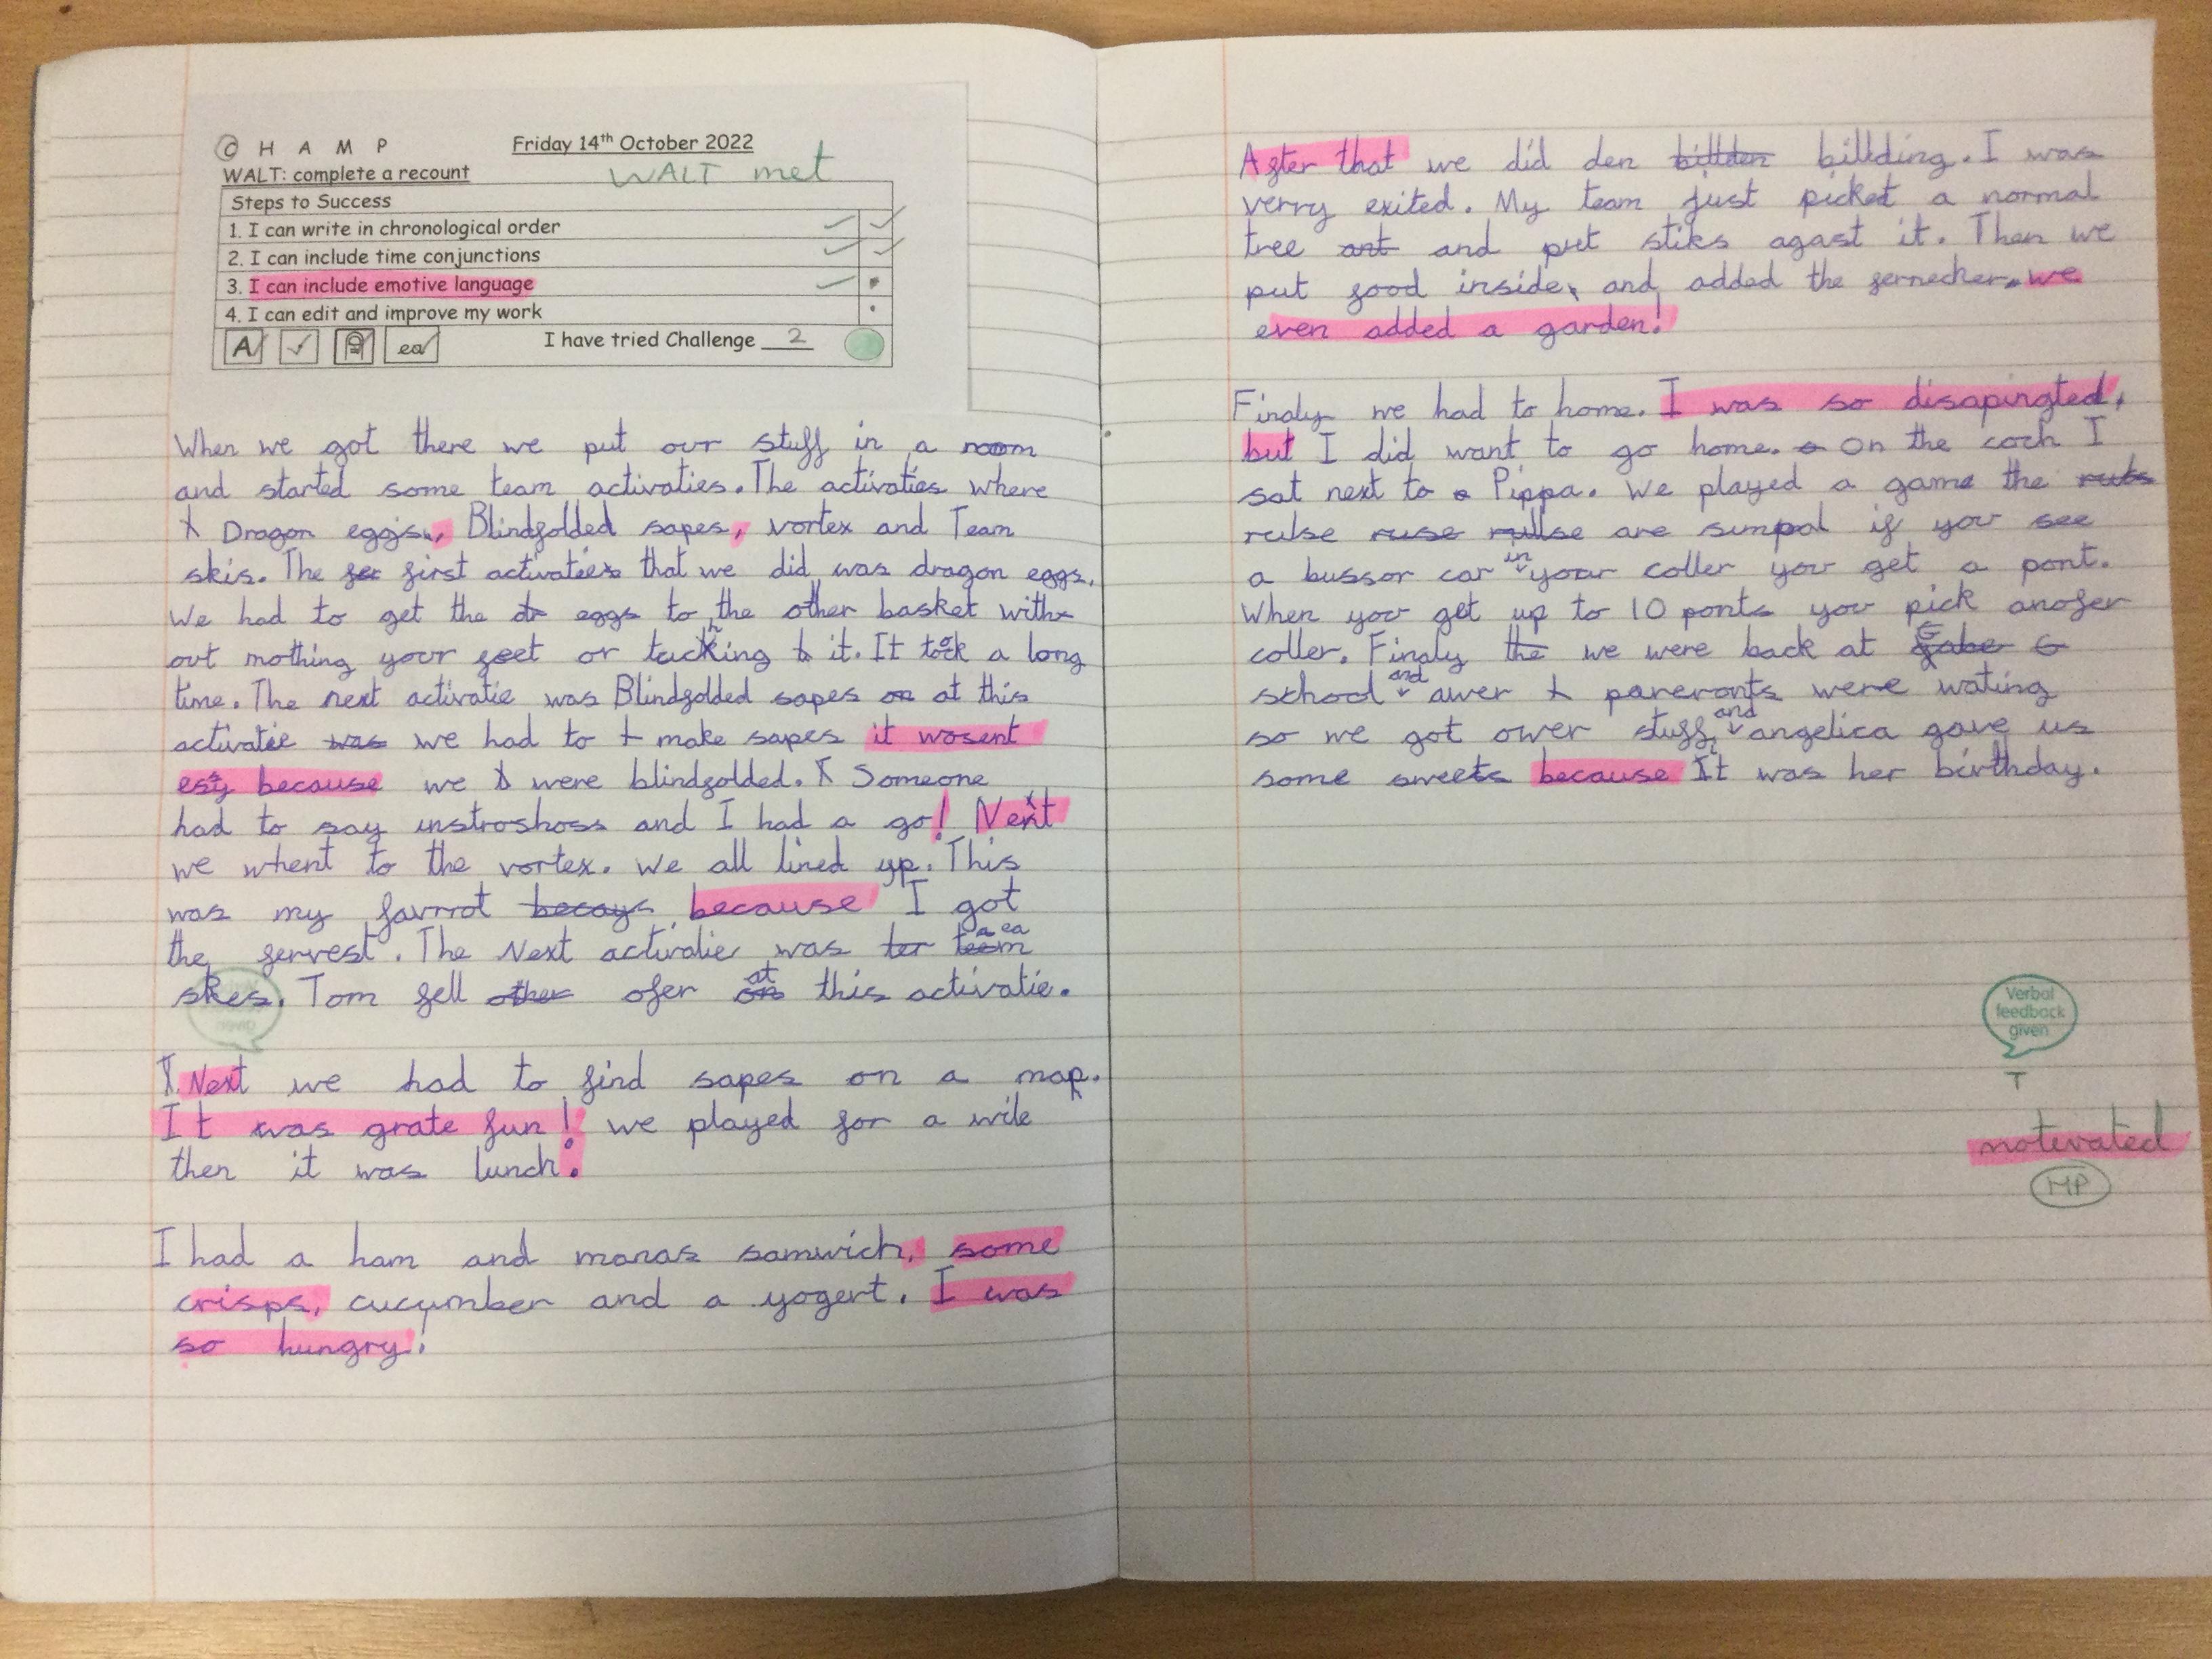 © H A M P
Friday 14th October 2022
WALT: complete a recount
WALT met
Steps to Success
1. I can write in chronological order
2. I can include time conjunctions
3. I can include emotive language
4. I can edit and improve my work
I have tried Challenge 2
When we got there we put our stuff in a room
and started some team activaties. The activaties where
Dragon eggs, Blindfolded sapes, vortex and Team
skis. The first activatie that we did was dragon eggs.
We had to get the eggs to the other basket with
out mothing your feet or tuching it. It took a long
time. The next activatie was Blindfolded sapes at this
activatie we had to make sapes it wosent
esy because we were blindfolded. Someone
had to say instroshoss and I had a go! Next
we whent to the vortex. We all lined up. This
was my favrrot because I got
the fervest. The Next activatie was team
skes. Tom fell ofer at this activatie.
Next we had to find sapes on a map.
It was grate fun! we played for a wile
then it was lunch.
I had a ham and maras samwich, some
crisps, cucumber and a yogert. I was
so hungry!
After that we did den billding. I was
verry exited. My team just picket a normal
tree and put stiks agast it. Then we
put food inside, and added the fernecher. we
even added a garden!
Finaly we had to home. I was so disapingted,
but I did want to go home. On the coch I
sat next to Pippa. We played a game the
rulse are simpal if you see
a bussor car in your coller you get a pont.
When you get up to 10 ponts you pick anofer
coller. Finaly we were back at
school and awer parents were wating
so we got ower stuff and angelica gave us
some sweets because It was her birthday.
Verbal
feedback
given
T
motivated
MP